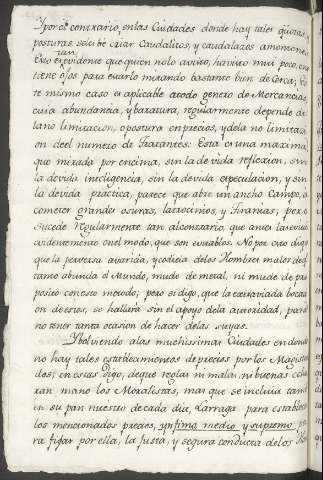 Y por el contrario, en las Ciudades donde hay tales
posturas se criar Caudalitos, y caudalazos
tan
Esto es evidente que quien no lo avisto, ha visto mui poco,
tiene ojos para verlo mirando bastante bien de Cerca;
te mismo caso es aplicable a todo genero de Mercancias
cuia abundancia, y baratura, regularmente depende de
la no limitacion, o postura en precios, y de la no limitaci
on de el numero de Tratantes: Esta es una maxima,
que mirada por encima, sin la devida reflexion, sin
la devida inteligencia, sin la devida especulacion, y sin
la devida practica, parece que abre un ancho Campo, a
cometer grandes osuras, latrocinios, y tiranias; pero
sucede regularmente tan al contrario, que antes las evita
evidentemente en el modo, que son evitables. No por esto digo
que la perversa avaricia, y codicia de los Hombres malos de q.
tanto abunda el Mundo, mude de metal, ni mude de pro
posito con este metodo; pero si digo, que la extraviada
on de estos, se hallará sin el apoyo de la autoridad, para
no tener tanta ocasion de hacer de las suyas.
Y bolviendo a las muchissimas Ciudades en donde
no hay tales establecimientos de precios por los Magistra
dos; en estas digo, de que reglas ni malas, ni buenas
man los Moralistas, mas que se incluia
in su pan nuestro de cada dia, Larraga para establecer
los mencionados precios, ynfimo, medio, y supremo pa
ra fixar por ella, la Justa, y segura conducta de los